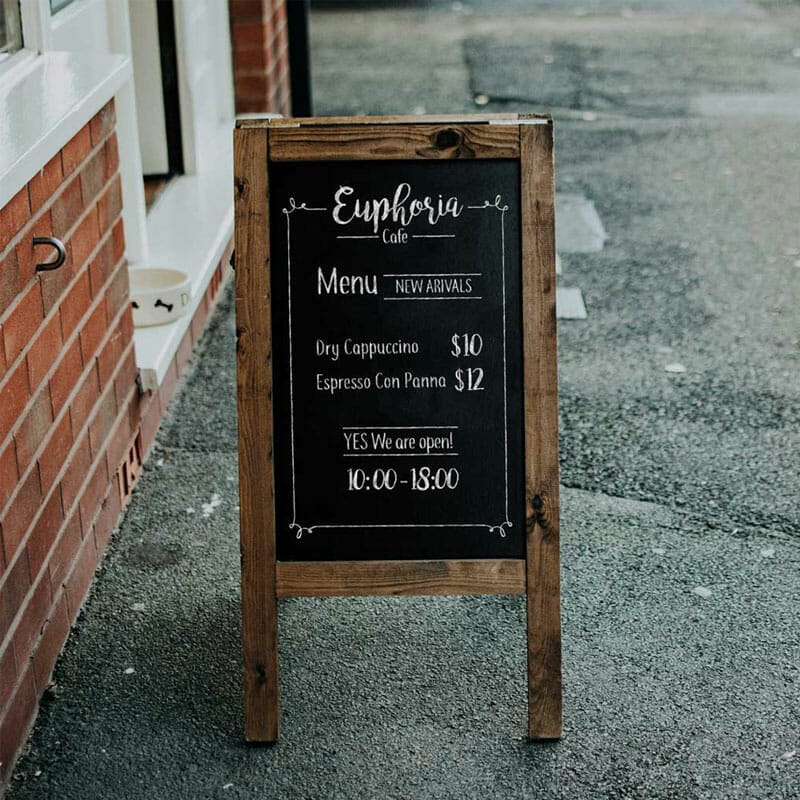 Euphoria
Cafe
Menu NEW ARIVALS
Dry Cappuccino $10
Espresso Con Panna $12
YES We are open!
10:00-18:00